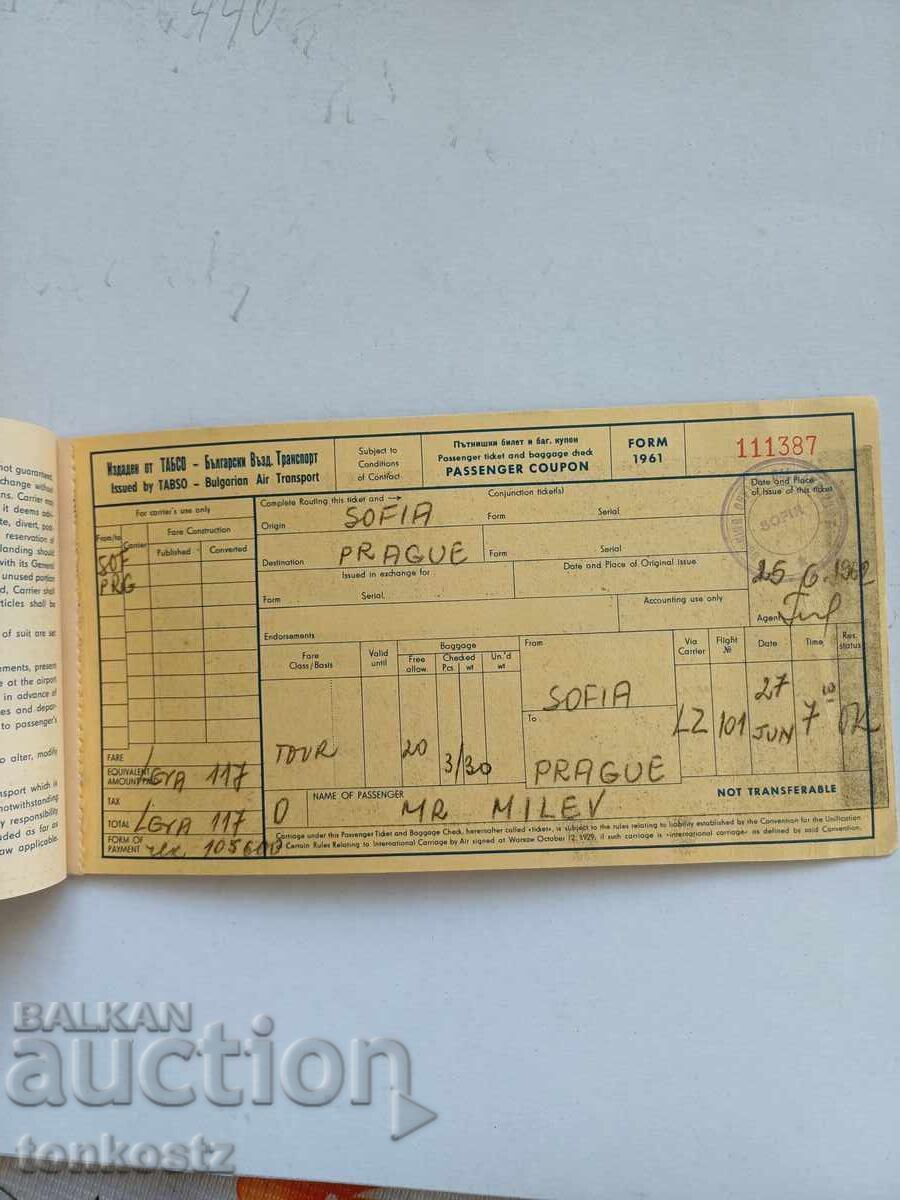 440
not guarantee
change without
ns. Carrier may
it deems ad-
te, divert, post-
reservation of
landing should
with its General
unused portion
d, Carrier shall
ticles shall be
of suit are set
ements, present
e at the airport
in advance of
es and depar-
to passenger's
o alter, modify
nsport which is
notwithstanding
y responsibility
uded as far as
aw applicable
Издаден от ТАБСО – Български Възд. Транспорт
Issued by TABSO – Bulgarian Air Transport
Subject to
Conditions
of Contract
Пътнишки билет и баг. купон
Passenger ticket and baggage check
PASSENGER COUPON
FORM
1961
111387
For carrier's use only
From/to
Carrier
Fare Construction
Published
Converted
SOF
PRG
Complete Routing this ticket and →
Conjunction ticket(s)
Origin SOFIA
Form Serial
Destination PRAGUE
Form Serial
Issued in exchange for
Date and Place of Original issue
Form Serial
Accounting use only
Date and Place
of Issue of this ticket
SOFIA
25 6. 1962
Agent
Endorsements
Fare
Class/Basis
Valid
until
Baggage
Free
allow.
Checked
Pcs. wt
Un.'d
wt
From
Via
Carrier
Flight
№
Date
Time
Res.
status
TOUR
20
3/30
SOFIA
To
PRAGUE
LZ
101
27
JUN
7
OK
FARE
EQUIVALENT
AMOUNT PAID
LEVA 117
TAX
TOTAL LEVA 117
FORM OF
PAYMENT
0
NAME OF PASSENGER
MR MILEV
NOT TRANSFERABLE
Carriage under this Passenger Ticket and Baggage Check, hereinafter called «ticket», is subject to the rules relating to liability established by the Convention for the Unification
of Certain Rules Relating to International Carriage by Air signed at Warsaw October 12, 1929, if such carriage is «international carriage» as defined by said Convention.
BALKAN
auction
tonkostz